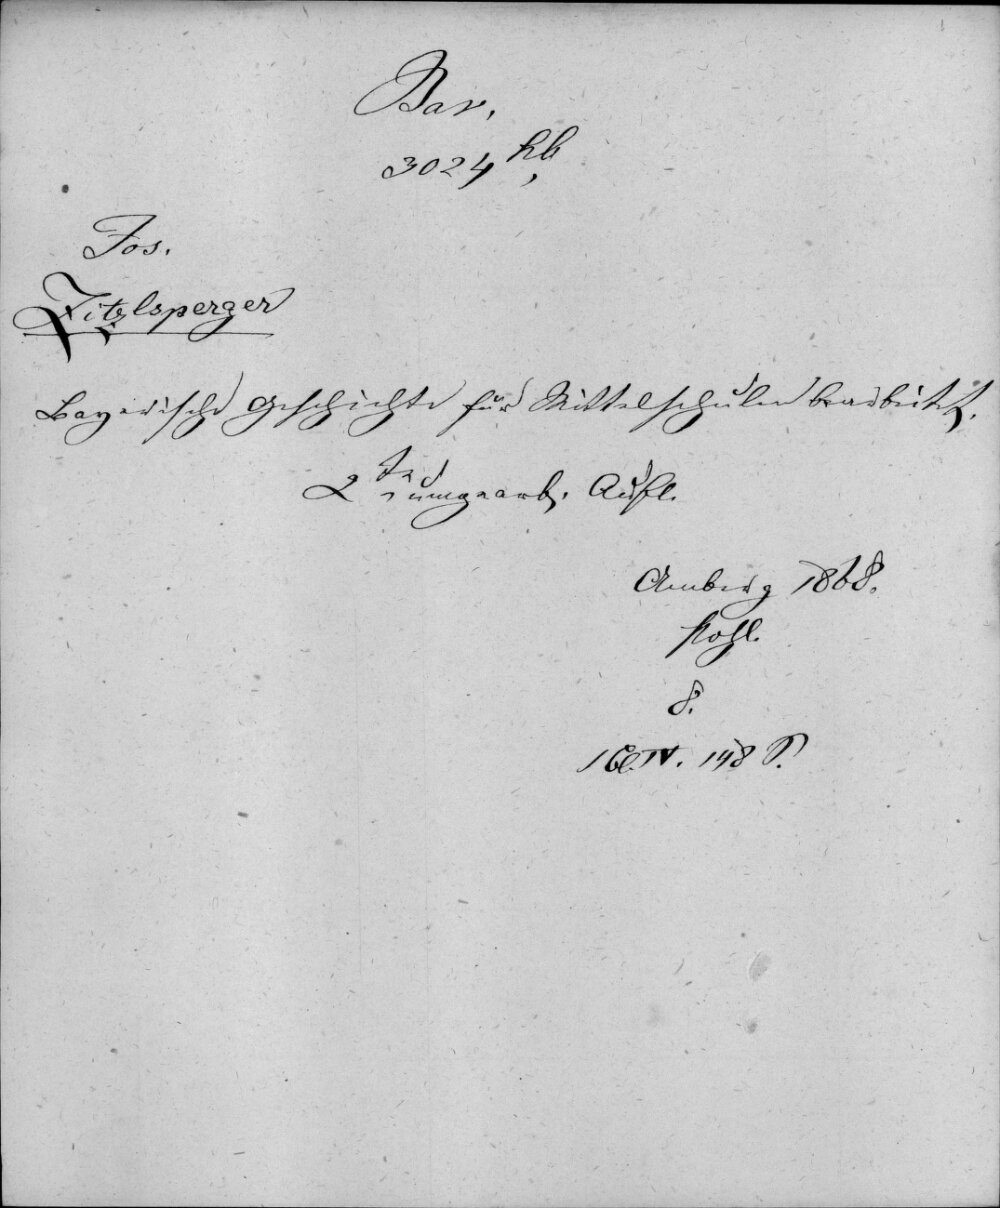 Bav.
3024 hb,
Jos.
Zitzlsperger
Bayerische Geschichte für Mittelschulen bearbeitet.
2te umgearb. Aufl.
Amberg 1868.
Pohl.
8.
1 Bl. IV. 148 S.